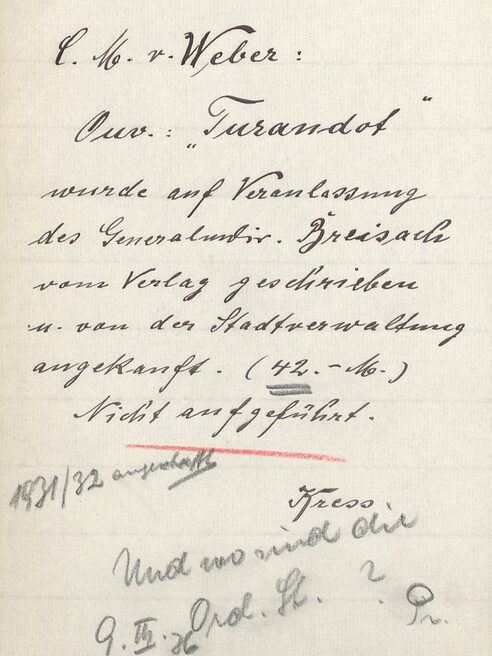 C. M. v. Weber:
Ouv.: „Turandot“
wurde auf Veranlassung
des Generalmdir. Breisach
vom Verlag geschrieben
u. von der Stadtverwaltung
angekauft. (42.- M.)
Nicht aufgeführt.
1931/32 angeschafft
Kress
Und wo sind die
Ord. St. ?
9. III. 36
Pr.